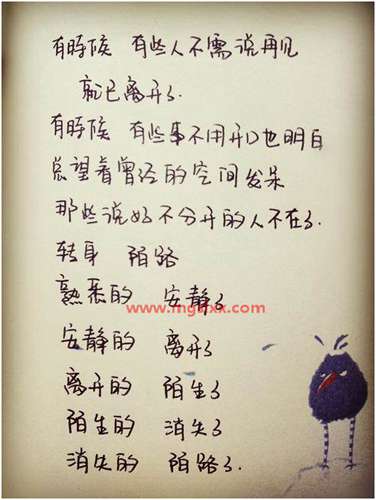 有時候 有些人不需说再见
就已离开了.
有時候 有些事不用开口也明白
总望着曾经的空间发呆
那些说好不分开的人不在了.
转身 陌路
熟悉的 安静了
www.mgs
xx.com
安静的 离开了
离开的 陌生了
陌生的 消失了
消失的 陌路了.